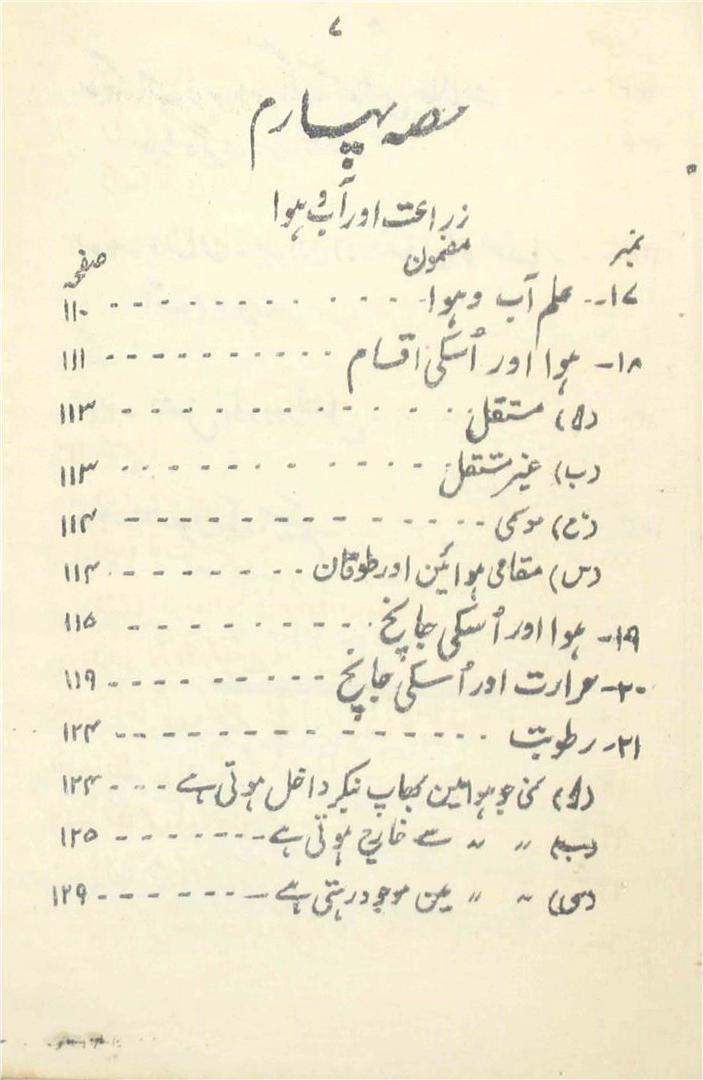 ۷
حصہ چہارم
زراعت اور آب و ہوا
نمبر مضمون صفحہ
۱۷- علم آب و ہوا ۱۱۰
۱۸- ہوا اور اُسکی اقسام ۱۱۱
(ا) مستقل ۱۱۳
(ب) غیر مستقل ۱۱۳
(ج) موسمی ۱۱۴
(س) مقامی ہوائین اور طوفان ۱۱۴
۱۹- ہوا اور اُسکی جانچ ۱۱۵
۲۰- حرارت اور اُسکی جانچ ۱۱۹
۲۱- رطوبت ۱۲۴
(ا) نمی جو ہوا مین بھاپ بنکر داخل ہوتی ہے ۱۲۴
(ب) ״ ״ سے خارج ہوتی ہے ۱۲۵
(س) ״ ״ مین موجود رہتی ہے ۱۲۹